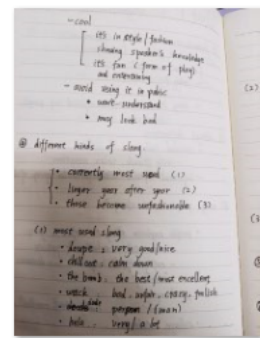 - cool
it's in style / fashion
showing speaker's knowledge
it's fun (form of play)
and entertaining
- avoid using it in public
• won't understand
• may look bad
@ different kinds of slang
• currently most used (1)
• linger year after year (2)
• those become unfashionable (3)
(1) most used slang
• : very good/nice
• chill out : calm down
• the bomb : the best / most excellent
• : bad, unfair, crazy, foolish
• : person / (man)
• hela : very / a lot
(2)
(3